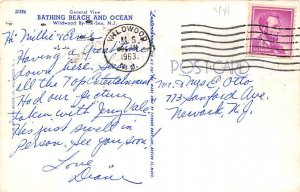 General View
BATHING BEACH AND OCEAN
Wildwood By-the-Sea, N.J.
Hi Millie
Having a great time
down here. Seeing
all the Top Entertainment
Had our picture
taken with Jerry Vale.
He's just swell in
person. See you soon!
Love
Diane
WILDWOOD
AUG
1963
N.J.
POSTCARD
Mr & Mrs E Otto
773 Sanford Ave.
Newark, N.J.